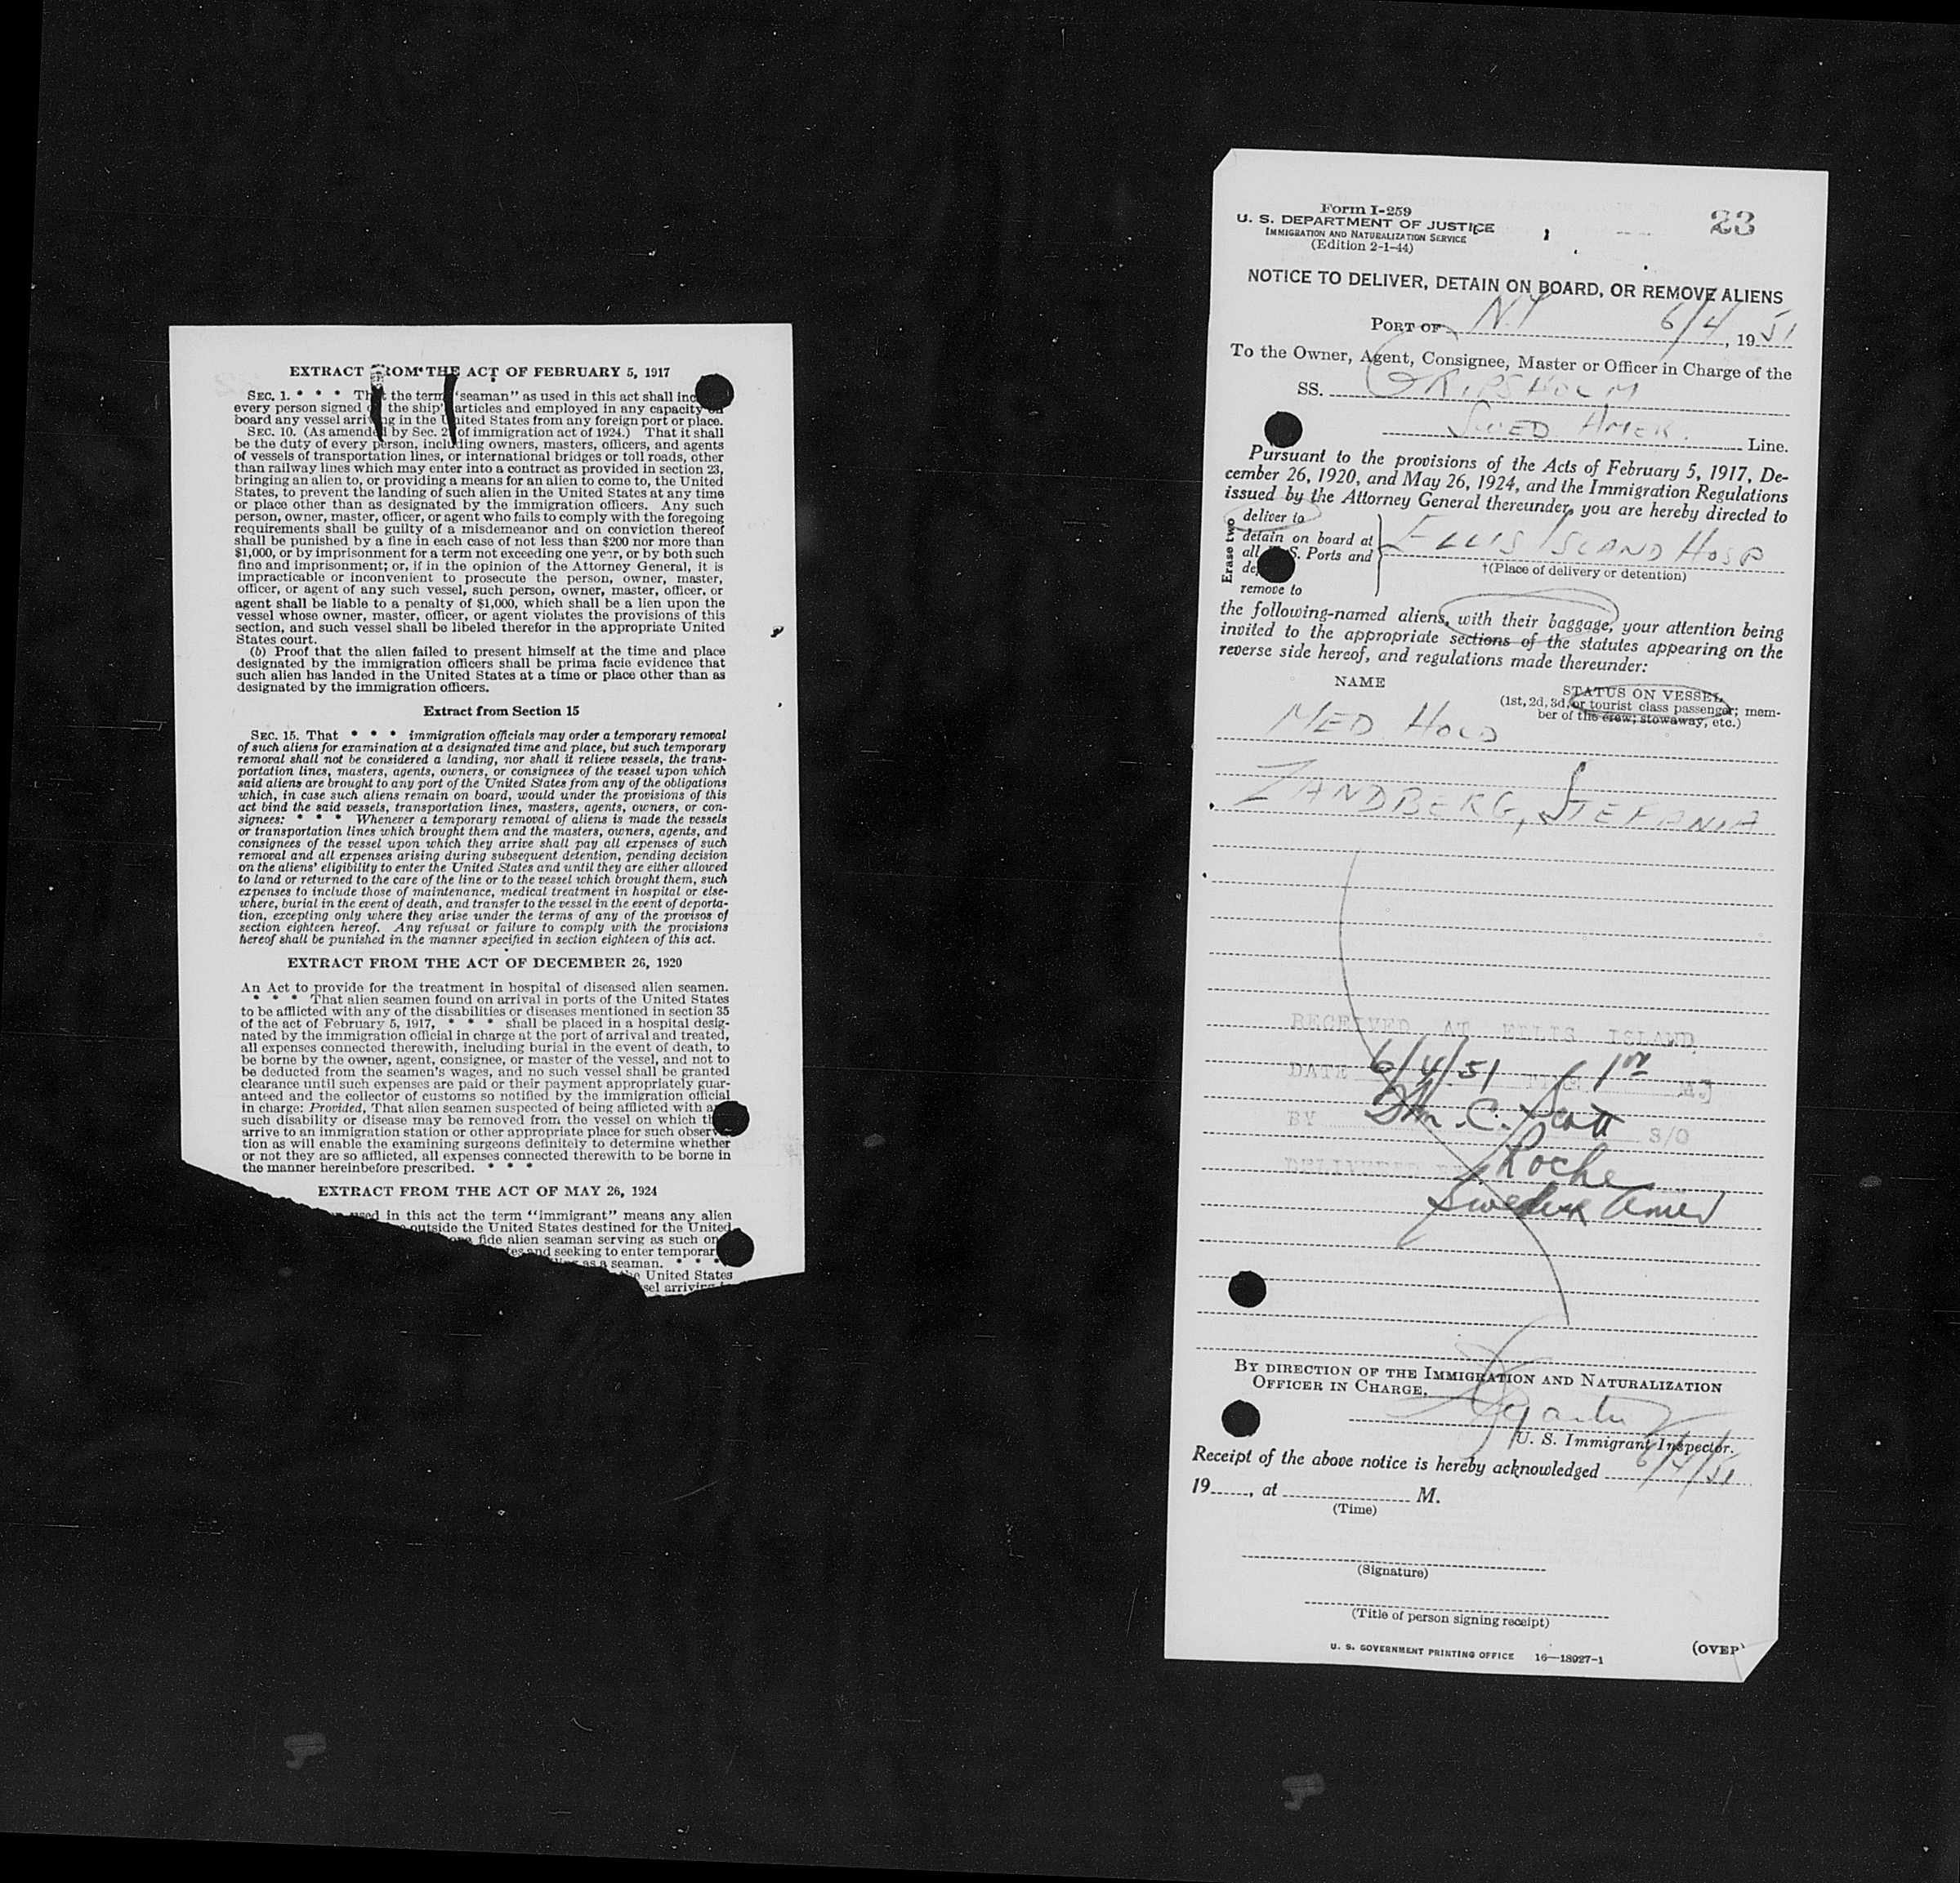 EXTRACT FROM THE ACT OF FEBRUARY 5, 1917
SEC. 1. * * * That the term "seaman" as used in this act shall inc
every person signed the ship's articles and employed in any capacity on
board any vessel arriving in the United States from any foreign port or place.
SEC. 10. (As amended by Sec. 2 of immigration act of 1924.) That it shall
be the duty of every person, including owners, masters, officers, and agents
of vessels of transportation lines, or international bridges or toll roads, other
than railway lines which may enter into a contract as provided in section 23,
bringing an alien to, or providing a means for an alien to come to, the United
States, to prevent the landing of such alien in the United States at any time
or place other than as designated by the immigration officers. Any such
person, owner, master, officer, or agent who fails to comply with the foregoing
requirements shall be guilty of a misdemeanor and on conviction thereof
shall be punished by a fine in each case of not less than $200 nor more than
$1,000, or by imprisonment for a term not exceeding one year, or by both such
fine and imprisonment; or, if in the opinion of the Attorney General, it is
impracticable or inconvenient to prosecute the person, owner, master,
officer, or agent of any such vessel, such person, owner, master, officer, or
agent shall be liable to a penalty of $1,000, which shall be a lien upon the
vessel whose owner, master, officer, or agent violates the provisions of this
section, and such vessel shall be libeled therefor in the appropriate United
States court.
(b) Proof that the alien failed to present himself at the time and place
designated by the immigration officers shall be prima facie evidence that
such alien has landed in the United States at a time or place other than as
designated by the immigration officers.
Extract from Section 15
SEC. 15. That * * * immigration officials may order a temporary removal
of such aliens for examination at a designated time and place, but such temporary
removal shall not be considered a landing, nor shall it relieve vessels, the trans-
portation lines, masters, agents, owners, or consignees of the vessel upon which
said aliens are brought to any port of the United States from any of the obligations
which, in case such aliens remain on board, would under the provisions of this
act bind the said vessels, transportation lines, masters, agents, owners, or con-
signees: * * * Whenever a temporary removal of aliens is made the vessels
or transportation lines which brought them and the masters, owners, agents, and
consignees of the vessel upon which they arrive shall pay all expenses of such
removal and all expenses arising during subsequent detention, pending decision
on the aliens' eligibility to enter the United States and until they are either allowed
to land or returned to the care of the line or to the vessel which brought them, such
expenses to include those of maintenance, medical treatment in hospital or else-
where, burial in the event of death, and transfer to the vessel in the event of deporta-
tion, excepting only where they arise under the terms of any of the provisos of
section eighteen hereof. Any refusal or failure to comply with the provisions
hereof shall be punished in the manner specified in section eighteen of this act.
EXTRACT FROM THE ACT OF DECEMBER 26, 1920
An Act to provide for the treatment in hospital of diseased alien seamen.
* * * That alien seamen found on arrival in ports of the United States
to be afflicted with any of the disabilities or diseases mentioned in section 35
of the act of February 5, 1917, * * * shall be placed in a hospital desig-
nated by the immigration official in charge at the port of arrival and treated,
all expenses connected therewith, including burial in the event of death, to
be borne by the owner, agent, consignee, or master of the vessel, and not to
be deducted from the seamen's wages, and no such vessel shall be granted
clearance until such expenses are paid or their payment appropriately guar-
anteed and the collector of customs so notified by the immigration official
in charge: Provided, That alien seamen suspected of being afflicted with any
such disability or disease may be removed from the vessel on which they
arrive to an immigration station or other appropriate place for such observa-
tion as will enable the examining surgeons definitely to determine whether
or not they are so afflicted, all expenses connected therewith to be borne in
the manner hereinbefore prescribed. * * *
EXTRACT FROM THE ACT OF MAY 26, 1924
used in this act the term "immigrant" means any alien
outside the United States destined for the United
fide alien seaman serving as such on
and seeking to enter temporar
as a seaman. * * *
the United States
sel arriving
Form I-259
U. S. DEPARTMENT OF JUSTICE
IMMIGRATION AND NATURALIZATION SERVICE
(Edition 2-1-44)
23
NOTICE TO DELIVER, DETAIN ON BOARD, OR REMOVE ALIENS
PORT OF N.Y 6/4, 1951
To the Owner, Agent, Consignee, Master or Officer in Charge of the
SS. GRIPSHOLM
SWED AMER. Line.
Pursuant to the provisions of the Acts of February 5, 1917, De-
cember 26, 1920, and May 26, 1924, and the Immigration Regulations
issued by the Attorney General thereunder, you are hereby directed to
Erase two
deliver to
detain on board at
all U.S. Ports and
de
remove to
ELLIS ISLAND HOSP
†(Place of delivery or detention)
the following-named aliens, with their baggage, your attention being
invited to the appropriate sections of the statutes appearing on the
reverse side hereof, and regulations made thereunder:
NAME
STATUS ON VESSEL
(1st, 2d, 3d, or tourist class passenger; mem-
ber of the crew; stowaway, etc.)
MED HOLD
ZANDBERG, STEFANIA
RECEIVED AT ELLIS ISLAND
DATE 6/4/51 TIME 1
BY C. Scott S/O
DELIVERED BY Roche
Swedish Amer
BY DIRECTION OF THE IMMIGRATION AND NATURALIZATION
OFFICER IN CHARGE,
U. S. Immigrant Inspector.
Receipt of the above notice is hereby acknowledged 6/4/51
19, at M.
(Time)
(Signature)
(Title of person signing receipt)
U. S. GOVERNMENT PRINTING OFFICE 16—18927-1
(OVER)